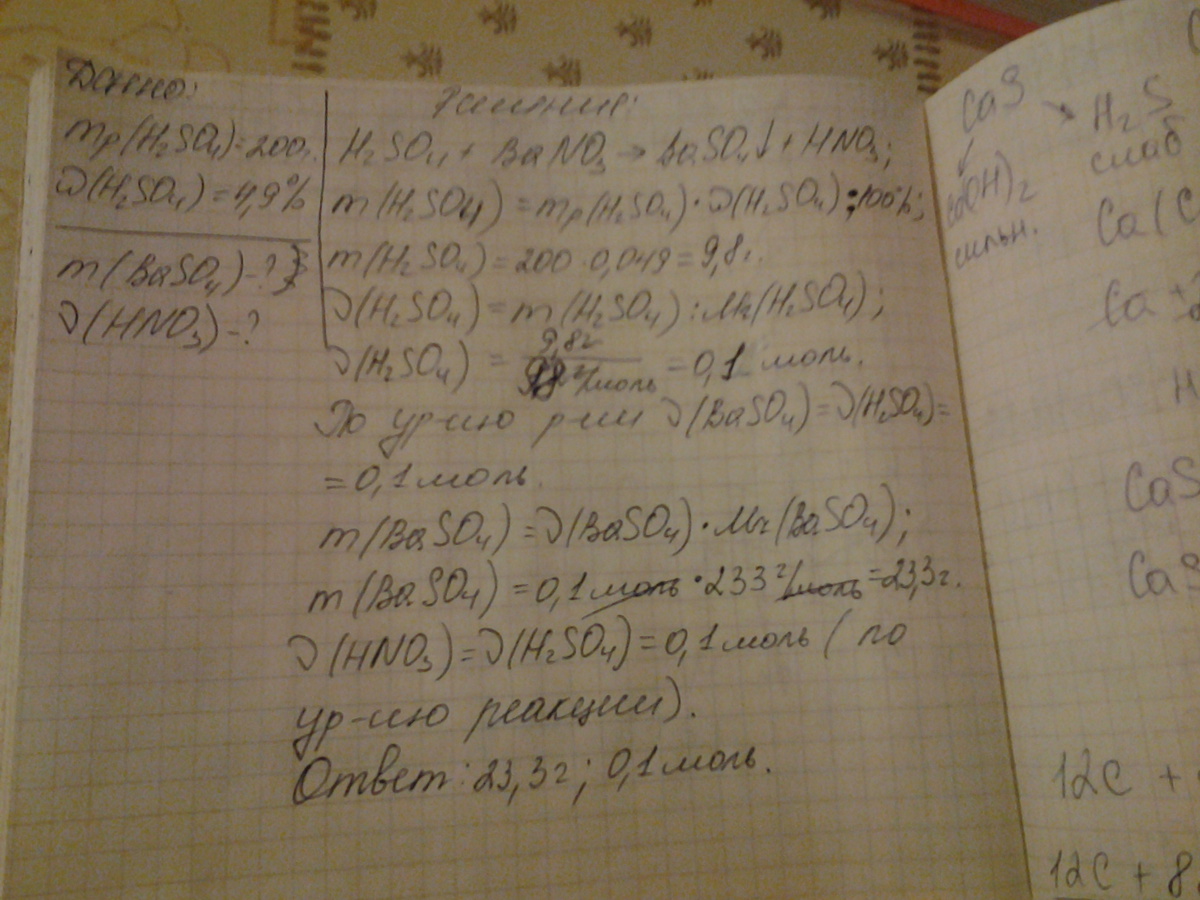 Данно:
mр(H₂SO₄)=200г.
ω(H₂SO₄)=4,9%
m(BaSO₄)-?
ν(HNO₃)-?
Решения:
H₂SO₄ + BaNO₃ → BaSO₄↓ + HNO₃;
m(H₂SO₄) = mр(H₂SO₄)·ω(H₂SO₄):100%;
m(H₂SO₄)=200·0,049=9,8г.
ν(H₂SO₄)=m(H₂SO₄):Mr(H₂SO₄);
ν(H₂SO₄) = 9,8г / 98 г/моль = 0,1 моль.
По ур-ию р-ии ν(BaSO₄)=ν(H₂SO₄)=
=0,1 моль.
m(BaSO₄)=ν(BaSO₄)·Mr(BaSO₄);
m(BaSO₄)=0,1 моль·233 г/моль=23,3г.
ν(HNO₃)=ν(H₂SO₄)=0,1 моль (по
ур-ию реакции).
Ответ: 23,3г; 0,1 моль.
CaS → H₂S
слаб
Ca(OH)₂
сильн.
Ca(C
Ca +
H
CaS
CaS
12C +
12C + 8